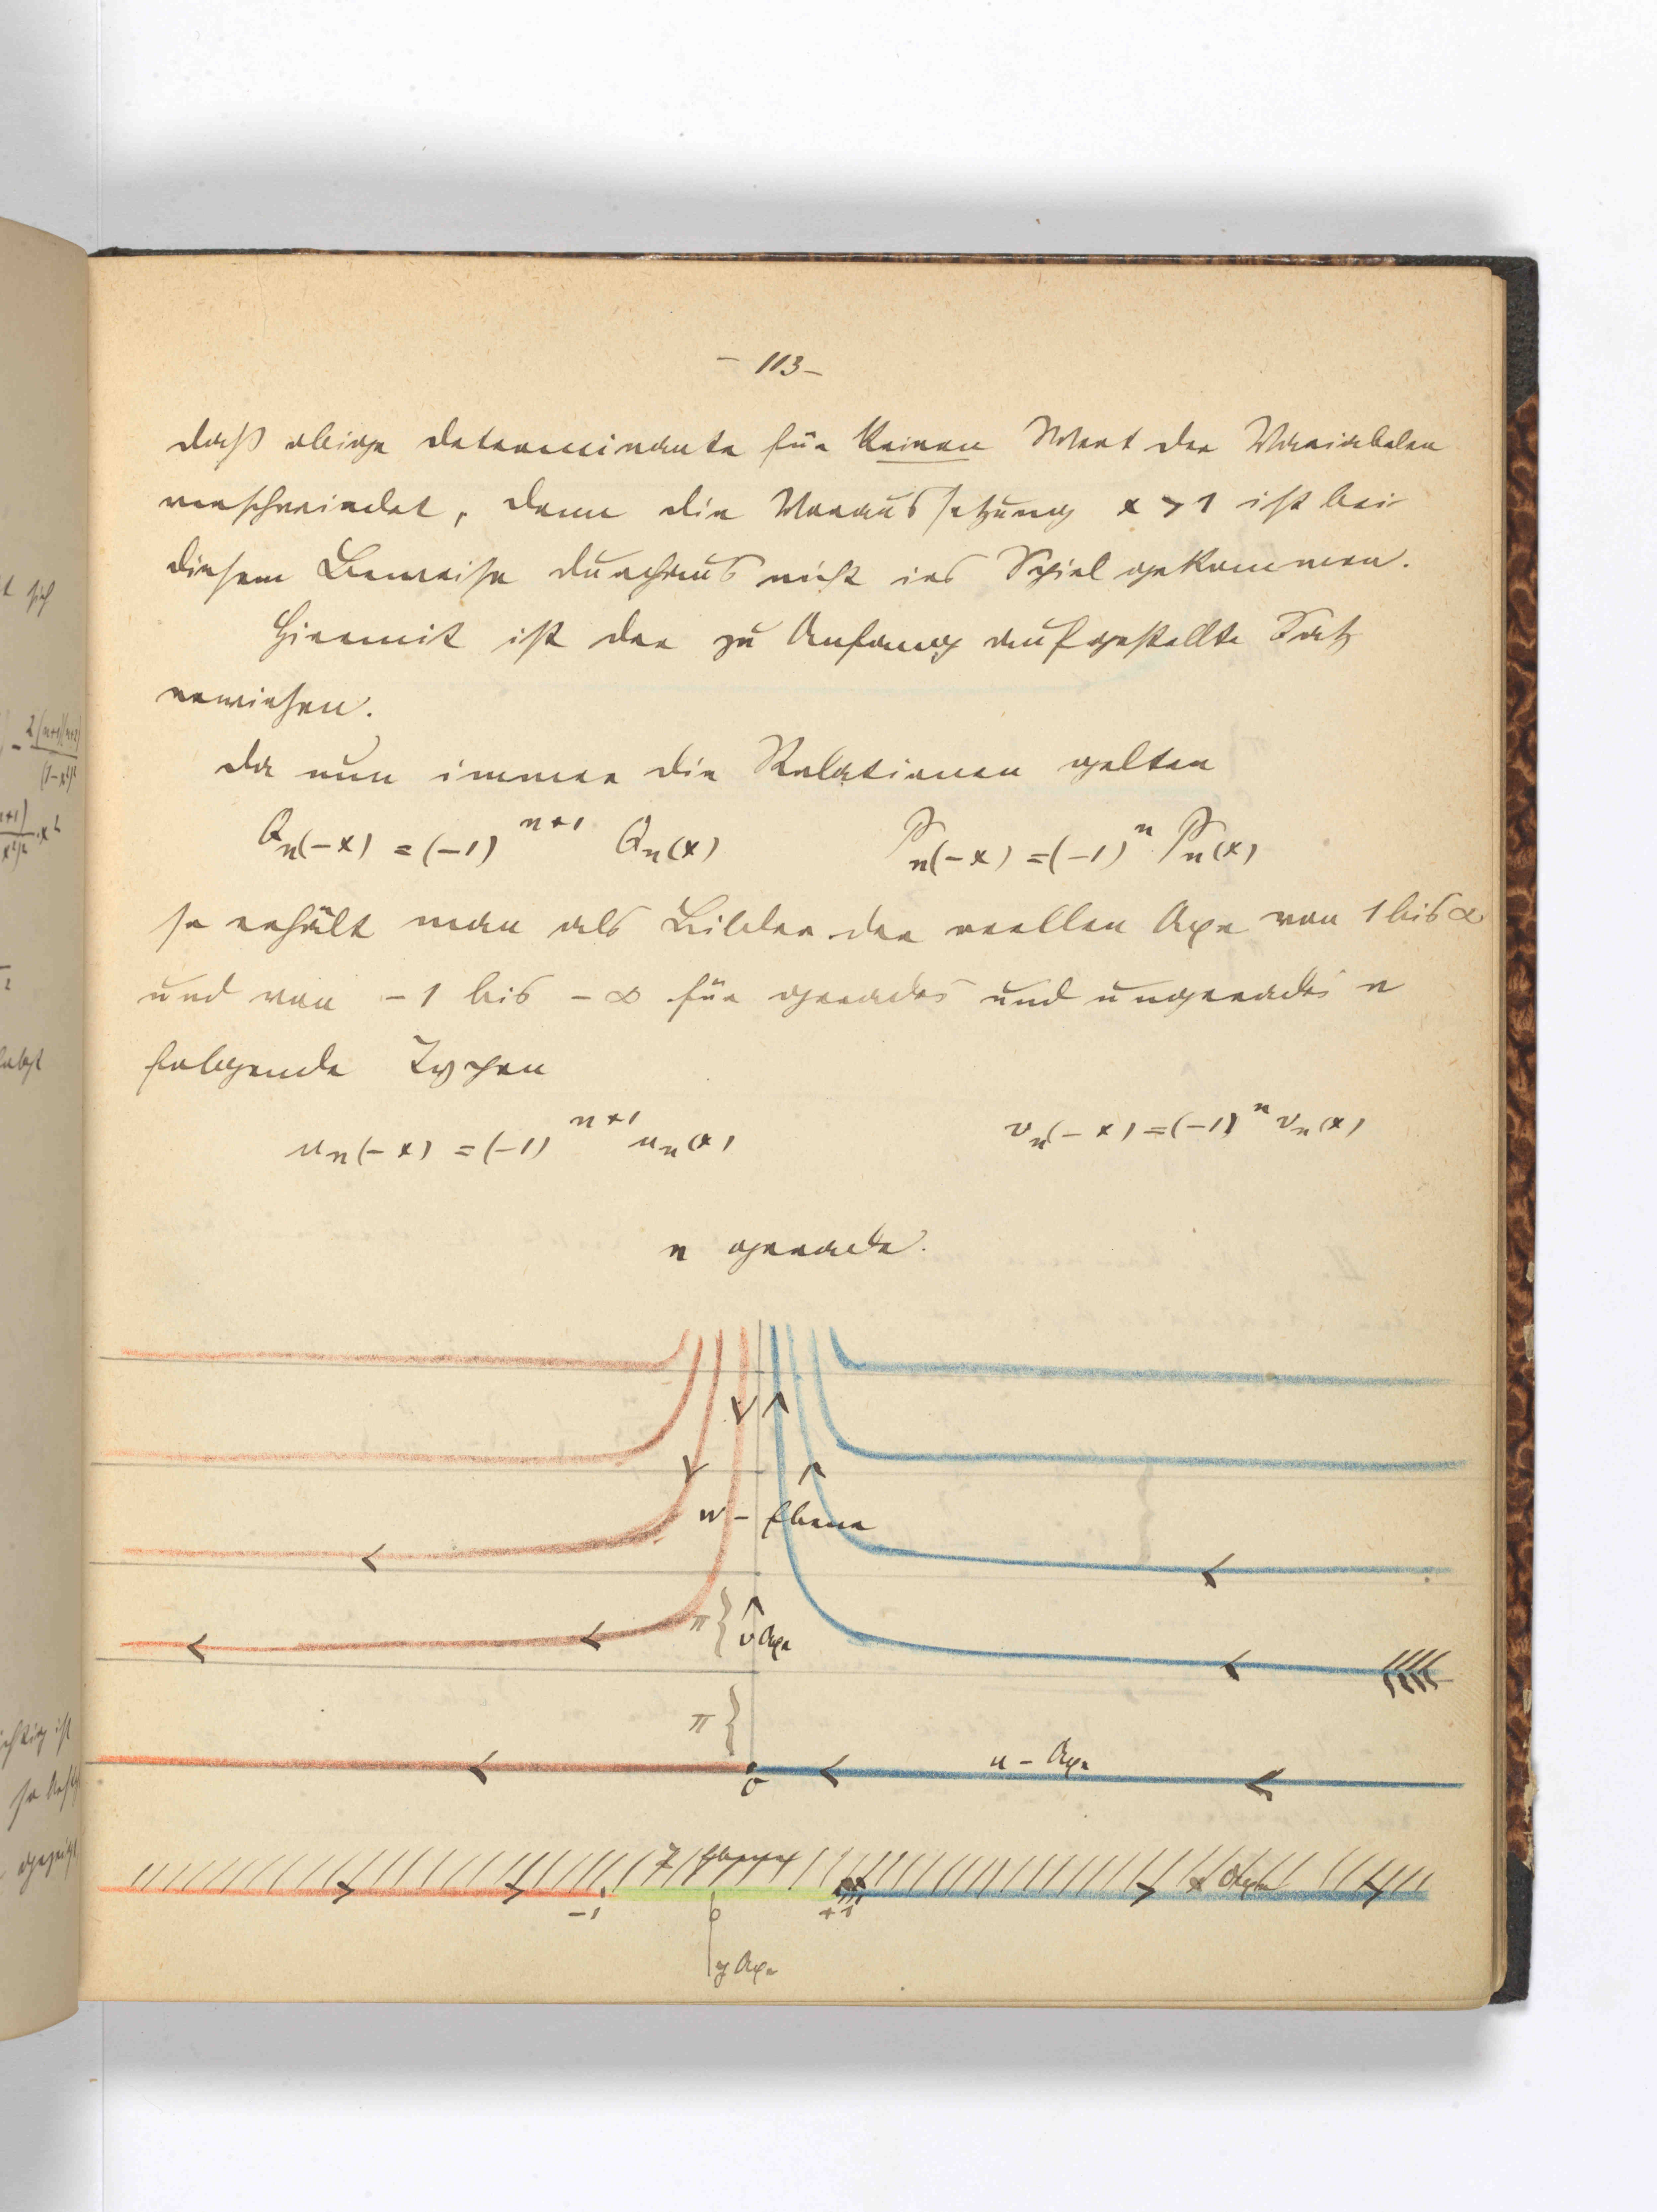 – 113 –
daß obige Determinante für keinen Wert der Variabelen
verschwindet, denn die Voraussetzung x > 1 ist bei
diesem Beweise durchaus nicht ins Spiel gekommen.
Hiermit ist der zu Anfang aufgestellte Satz
erwiesen.
Da nun immer die Relationen gelten
Qn(-x) = (-1)^{n+1} Qn(x) Pn(-x) = (-1)^n Pn(x)
so erhält man als Bilder der reellen Axe von 1 bis ∞
und von -1 bis -∞ für gerades und ungerades n
folgende Typen
un(-x) = (-1)^{n+1} un(x) vn(-x) = (-1)^n vn(x)
n gerade.
w - Ebene
π { v Axe
π {
u - Axe
0
Z Ebene
x Axe
-1 0 +1
y Axe